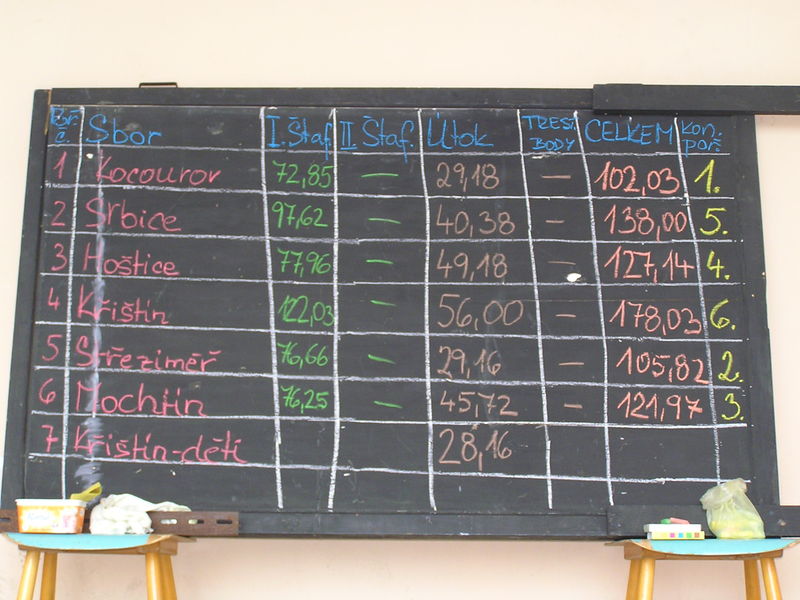 Poř. č. Sbor I. Štaf. II Štaf. Útok TREST. BODY CELKEM Kon. poř.
1 Kocourov 72,85 — 29,18 — 102,03 1.
2 Srbice 97,62 — 40,38 — 138,00 5.
3 Hoštice 77,96 — 49,18 — 127,14 4.
4 Křištín 122,03 — 56,00 — 178,03 6.
5 Střeziměř 76,66 — 29,16 — 105,82 2.
6 Mochtín 76,25 — 45,72 — 121,97 3.
7 Křištín-děti 28,16